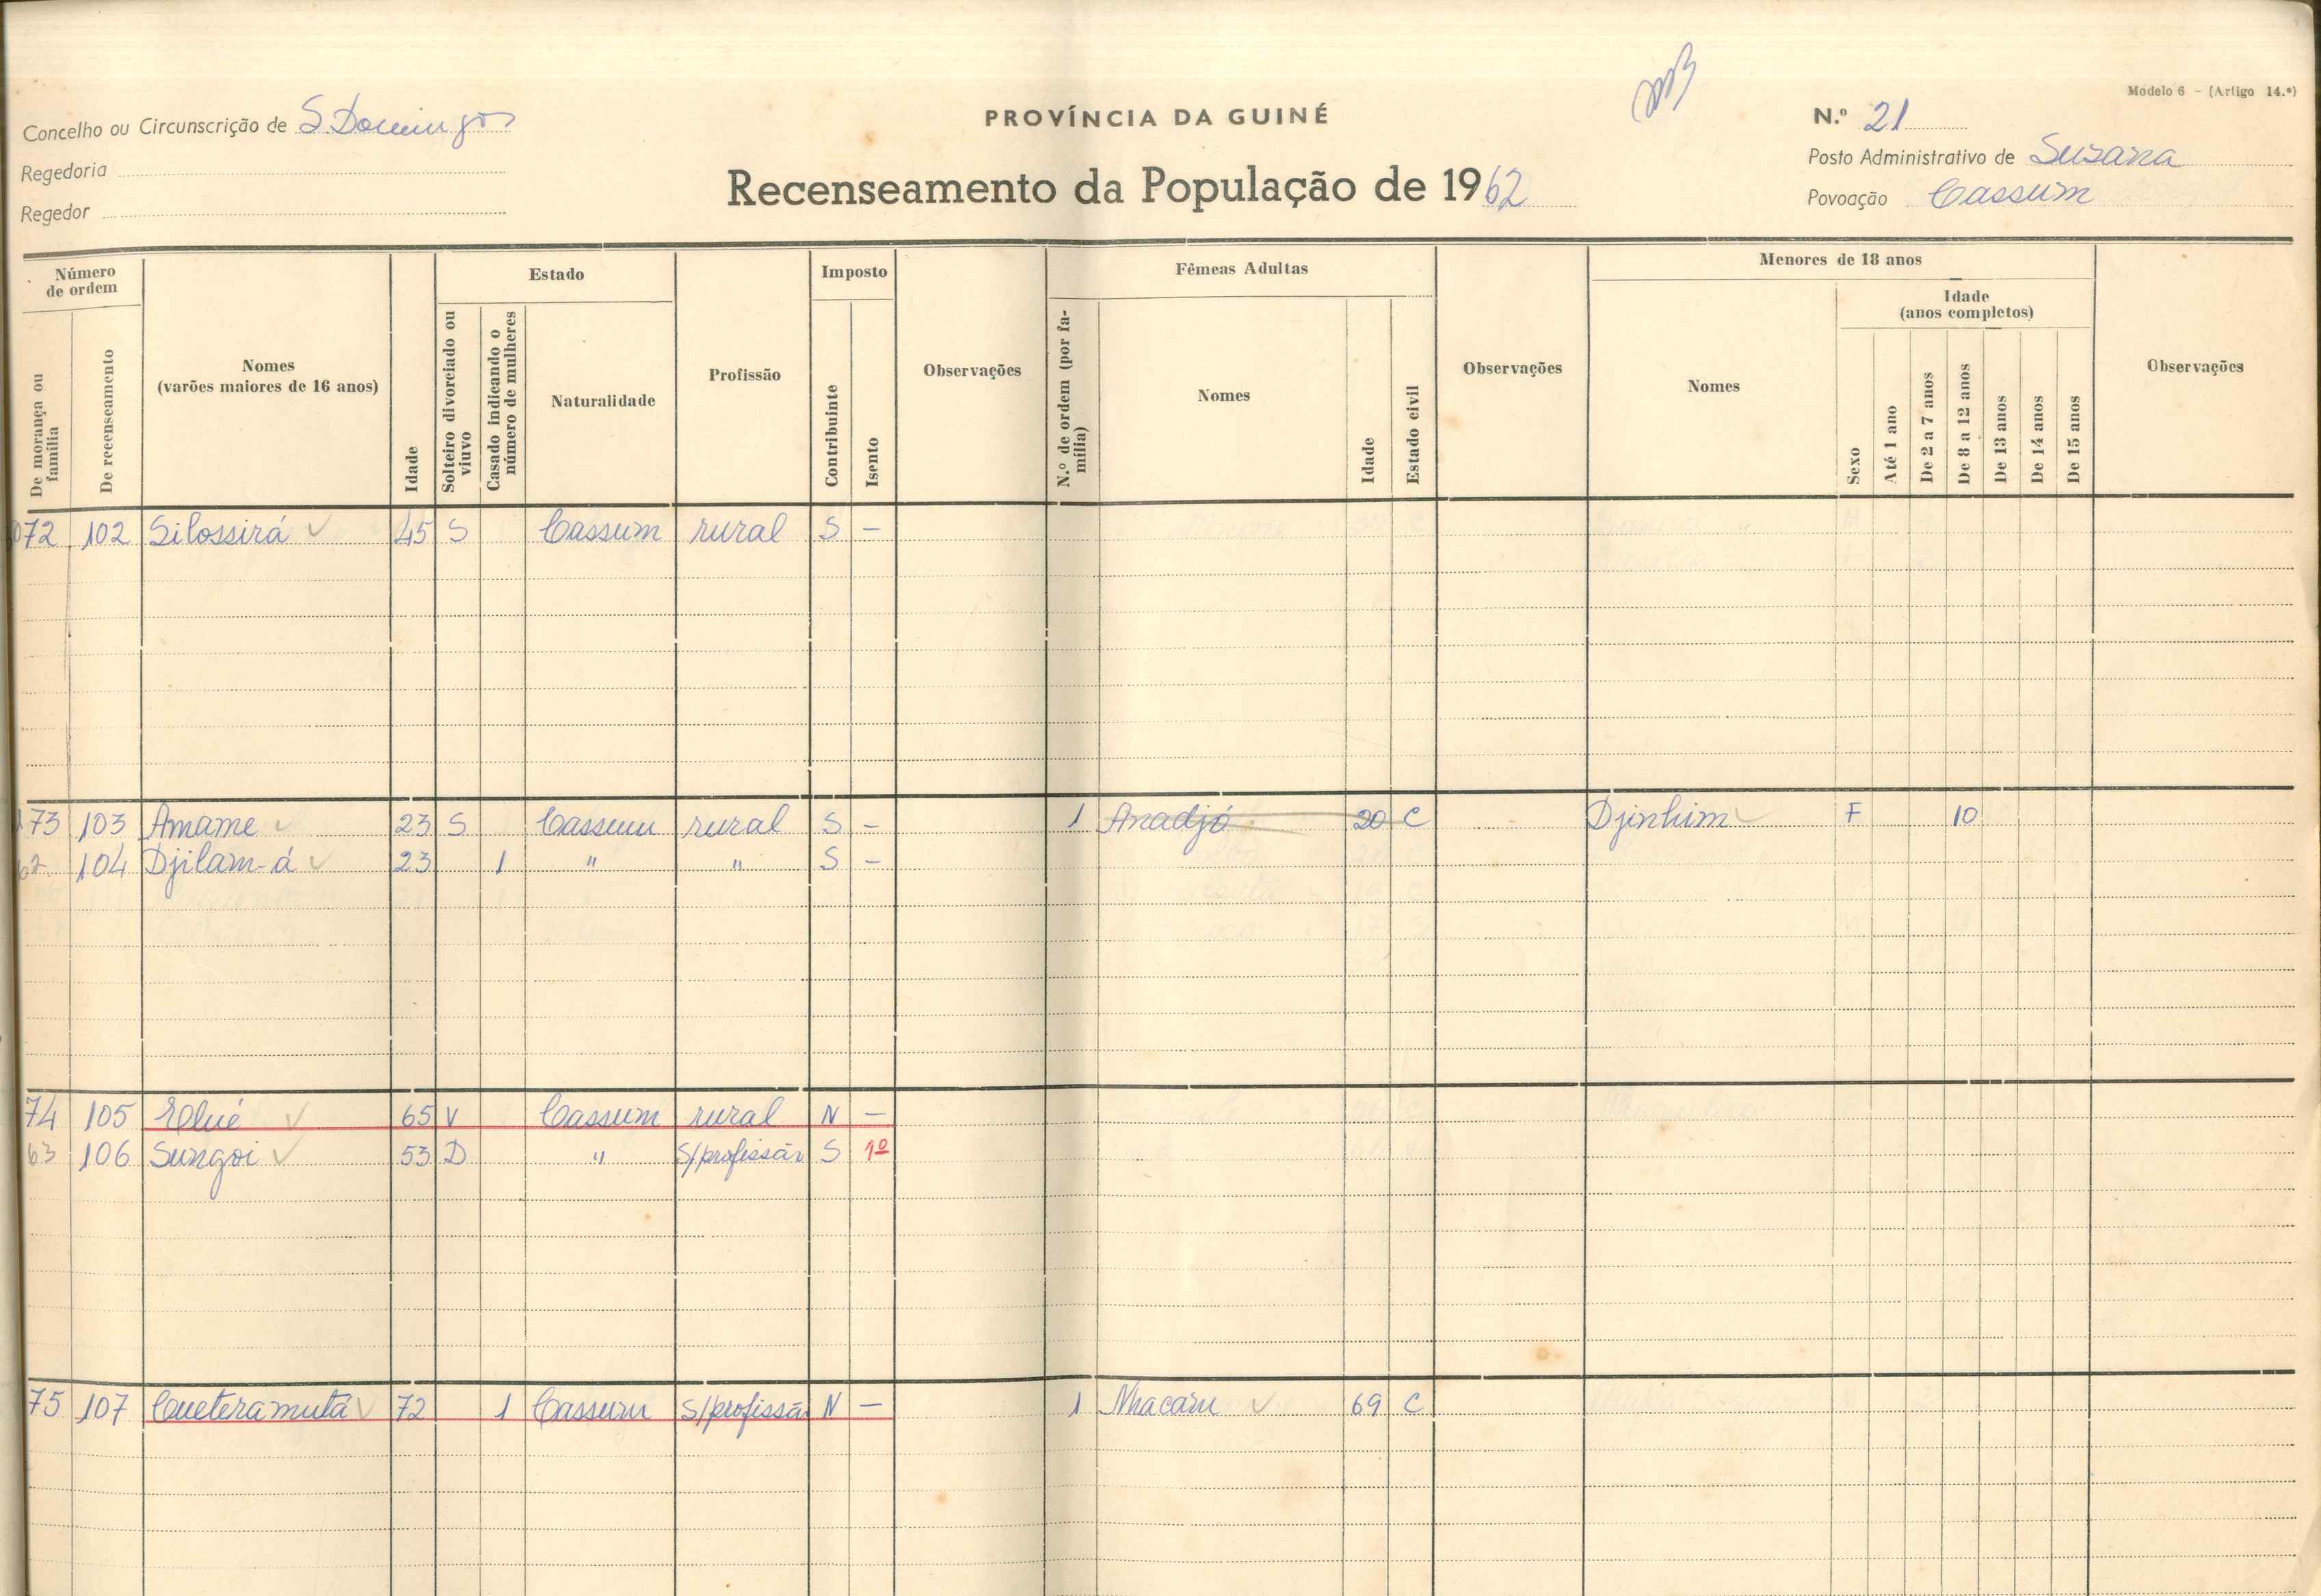 Modelo 6 - (Artigo 14.º)
Concelho ou Circunscrição de S. Domingos
PROVÍNCIA DA GUINÉ
N.º 21
Regedoria
Recenseamento da População de 1962
Posto Administrativo de Suzana
Regedor
Povoação Cassum
Número de ordem
De morança ou família
De recenseamento
Nomes
(varões maiores de 16 anos)
Idade
Estado
Solteiro divorciado ou viuvo
Casado indicando o número de mulheres
Naturalidade
Profissão
Imposto
Contribuinte
Isento
Observações
Fêmeas Adultas
N.º de ordem (por família)
Nomes
Idade
Estado civil
Observações
Menores de 18 anos
Nomes
Sexo
Idade
(anos completos)
Até 1 ano
De 2 a 7 anos
De 8 a 12 anos
De 13 anos
De 14 anos
De 15 anos
Observações
72 102 Silossirá 45 S Cassum rural S -
73 103 Amame 23 S Cassum rural S - 1 Anadjó 20 C Djinhim F 10
62 104 Djilam-á 23 1 " " S -
74 105 Elué 65 V Cassum rural N -
63 106 Sungoi 53 D " S/profissão S 1º
75 107 Cueteramutá 72 1 Cassum S/profissão N - 1 Nhacaru 69 C